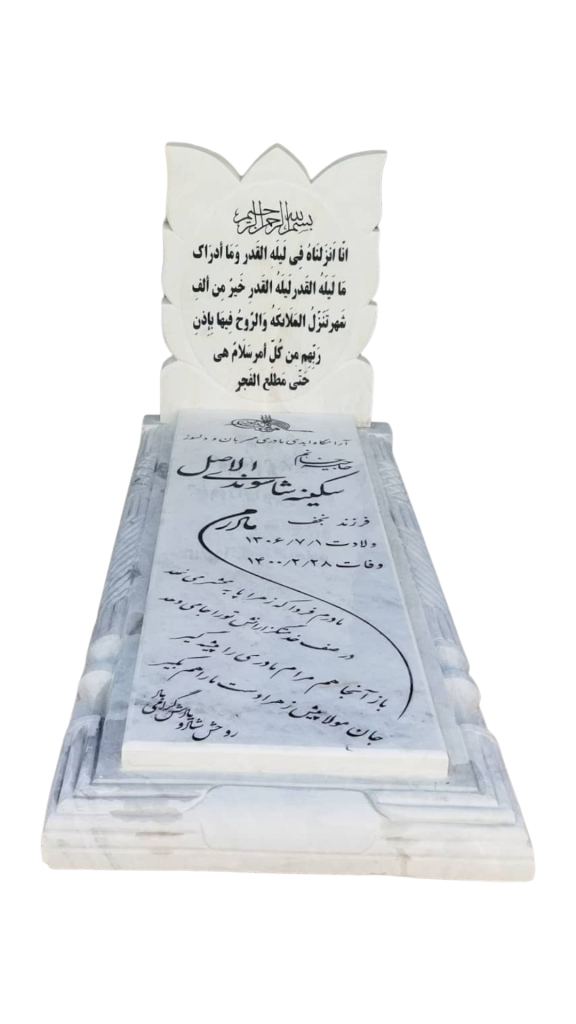 بسم الله الرحمن الرحیم
انّا اَنزَلناهُ فِی لَیلَهِ القَدر وَمَا أدرَاک
مَا لَیلَهُ القَدرلَیلَهُ القَدرِ خَیرُ مِن ألفِ
شَهرتَنَزّلُ المَلائکَهُ وَالرّوحُ فِیهَا بِإذنِ
رَبّهِم مِن کُلّ أمرسَلَامُ هی
حَتّی مَطلَعِ الفَجر
آرامگاه ابدی مادری مهربان و دلسوز
حاجیه خانم
سکینه شاسوندی الاصل
فرزند نجف
مادرم
ولادت ۱۳۰۶/۷/۱
وفات ۱۴۰۰/۲/۲۸
مادرم فردا که زهرا پا به محشر می نهد
در صف خدمتگزارانش تو را جا می دهد
باز آنجا هم مرام مادری را پیشه گیر
جان مولا پیش زهرا دست ما را هم بگیر
روحش شاد و یادش گرامی باد